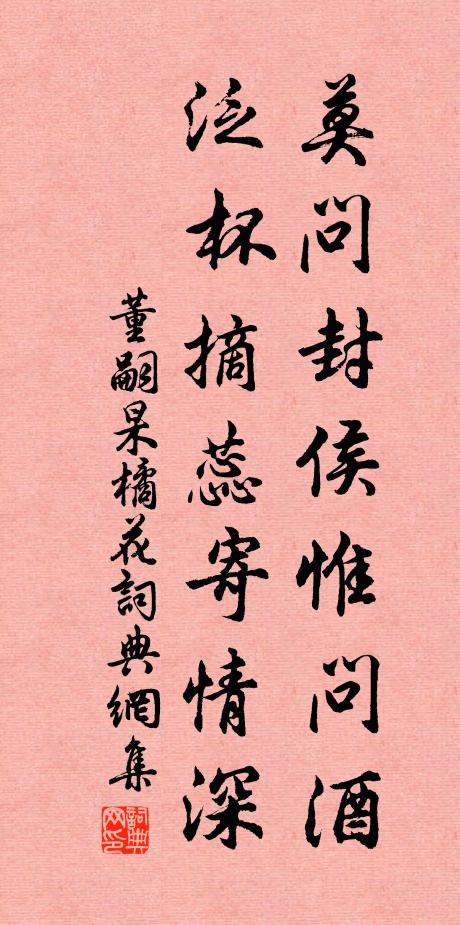 莫問封侯惟問酒
泛杯摘蕊寄情深
董嗣杲橘花詞典網集
詞典网印